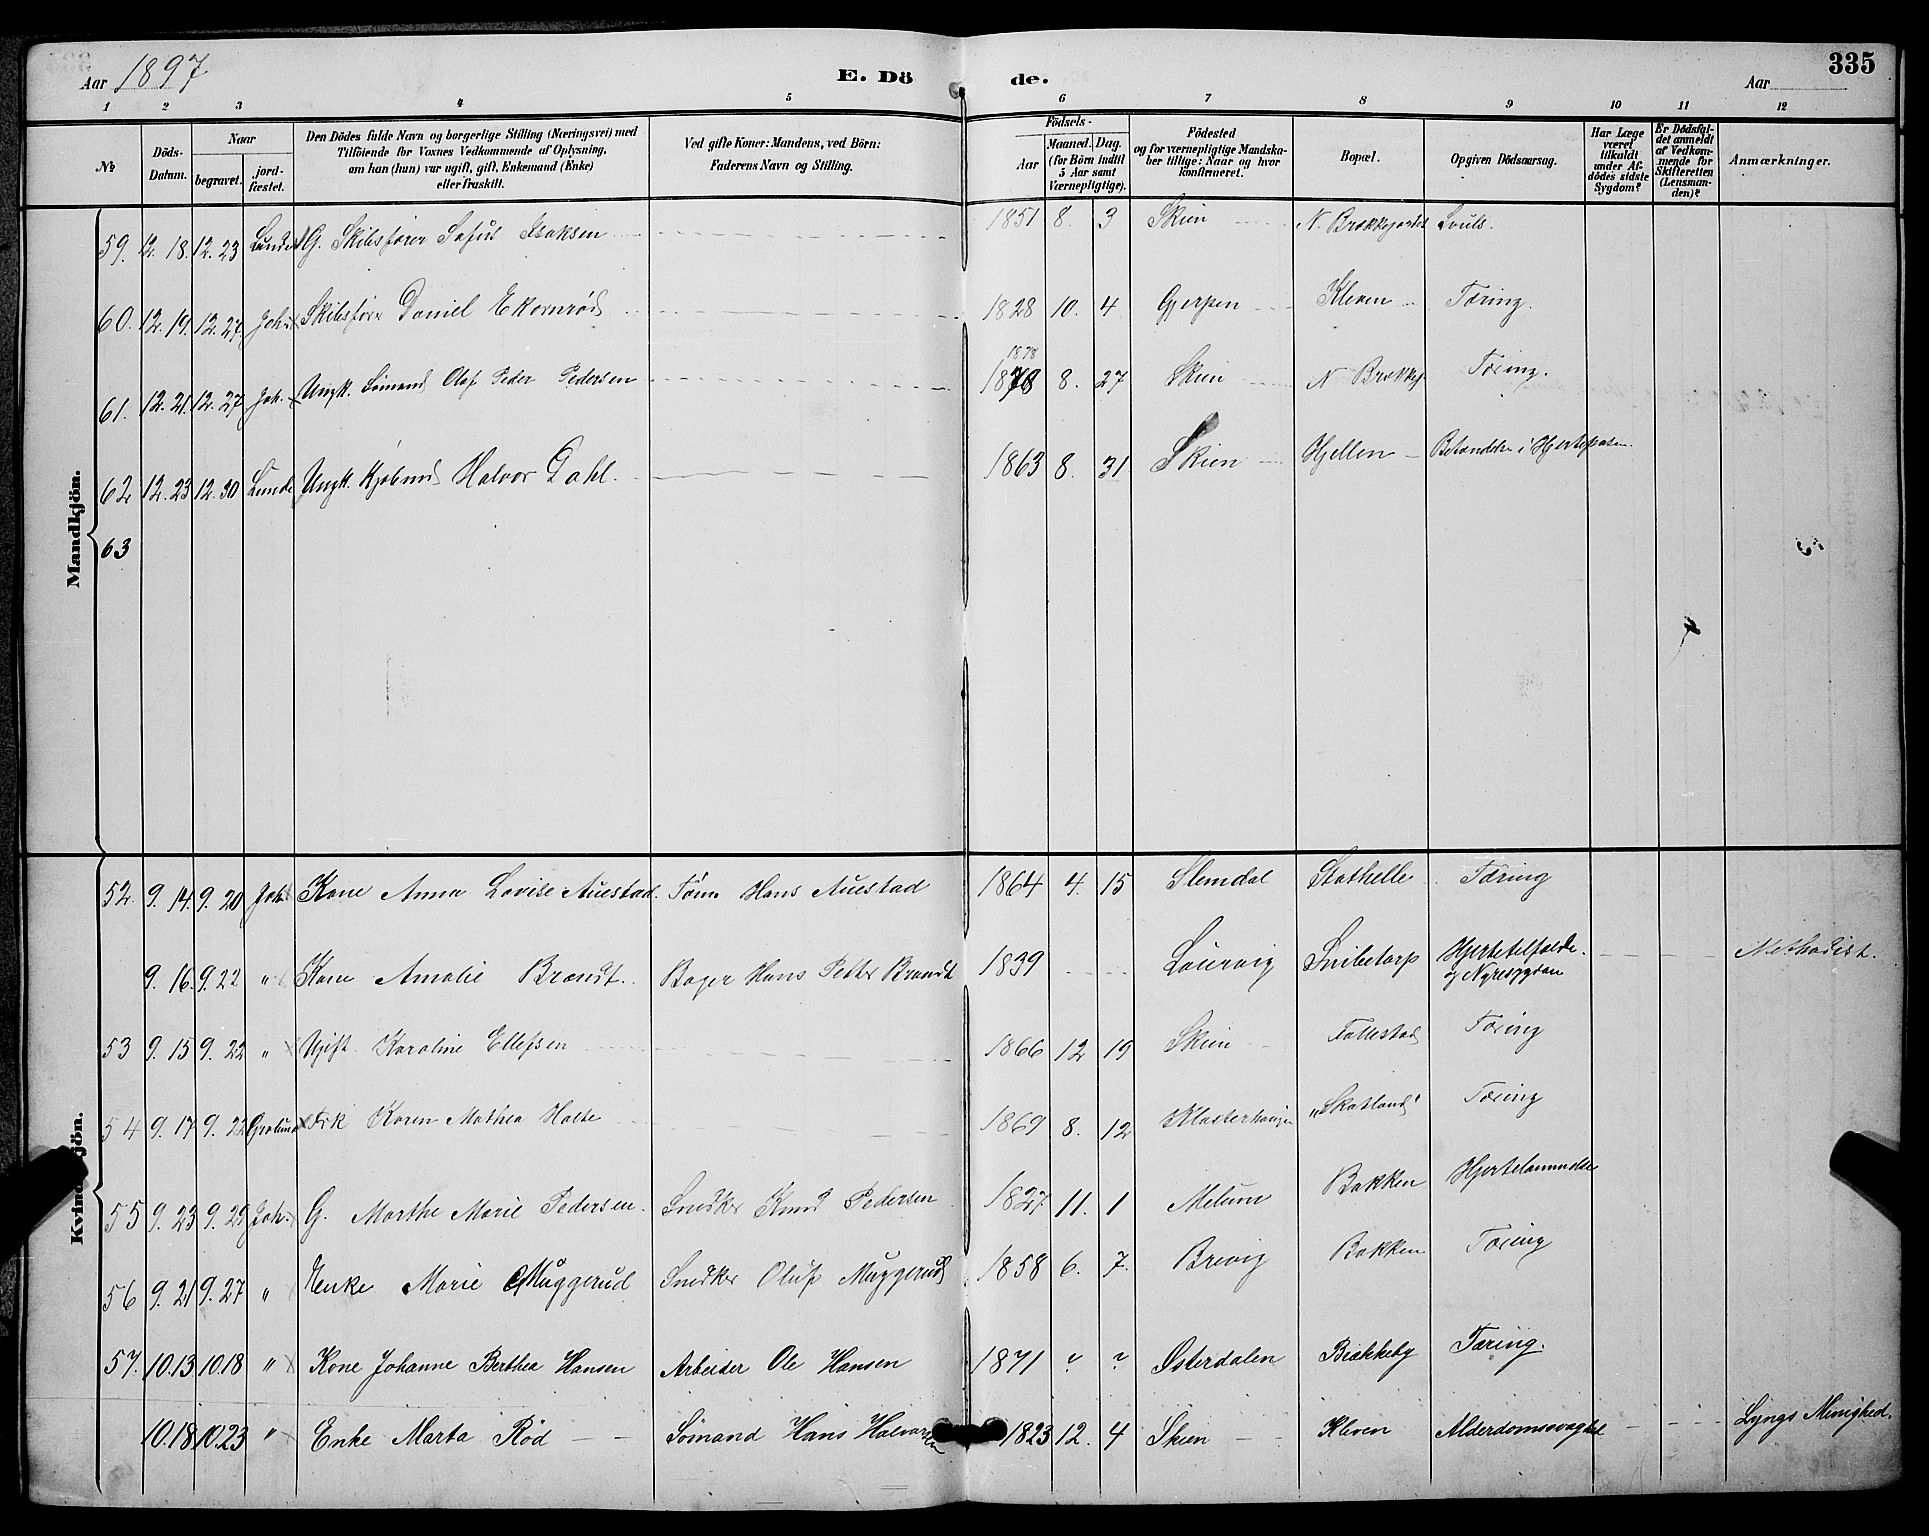 Aar 1897 E. Dö de. Aar 335
1 2 3 4 5 6 7 8 9 10 11 12
№ Döds-Datum. Naar begravet. jordfæstet. Den Dödes fulde Navn og borgerlige Stilling (Næringsvei) med Tilföiende for Voxnes Vedkommende af Oplysning, om han (hun) var ugift, gift, Enkemand (Enke) eller fraskilt. Ved gifte Koner: Mandens, ved Börn: Faderens Navn og Stilling. Födsels- Aar Maaned. Dag. (for Börn indtil 5 Aar samt Værnepligtige). Födested og for værnepligtige Mandskaber tillige: Naar og hvor konfirmeret. Bopæl. Opgiven Dödsaarsag. Har Læge været tilkaldt under Afdödes sidste Sygdom? Er Dödsfaldet anmeldt af Vedkommende for Skifteretten (Lensmanden)? Anmærkninger.
Mandkjön.
59. 12. 18. 12. 23 Lunde G. Skibsfører Sofus Isaksen 1851 8. 3 Skien N. Brækkegaden
60. 12. 19. 12. 27. Joh. Skibsfører Daniel Ekornrød 1828 10. 4 Gjerpen Kleven Tæring.
61. 12. 21. 12. 27 Joh. Ungk. Sømand Olaf Peder Pedersen 1878 1878 8. 27 Skien N Brækkeg Tæring.
62 12. 23 12. 30 Lunde Ungk. Kjøbmd Halvor Dahl. 1863 8. 31 Skien Hjellen Betændelse i Hjerteposen.
63
Kvindekjön.
52. 9. 14. 9. 20 Joh. Kone Anna Lovise Auestad. Tøm. Hans Auestad 1864 4. 15 Slemdal Stathelle Tæring
9. 16. 9. 22 " Kone Amalie Brandt. Bager Hans Petter Brandt 1839 Laurvig Snibetorp Hjertetilfælde. og Nyresygdom Methodist.
53 9. 15 9. 22 " Ugift. Karoline Ellefsen 1866 12 19 Skien Follestad Tæring
54 9. 17 9. 22 Frk Karen Mathea Holte 1869 8. 12 Klosterhaugen "Skotland" Tæring
55 9. 23 9. 29 Joh. G. Marthe Marie Pedersen. Snedker Knud Pedersen 1827. 11. 1 Melum Bakken Hjertelammelse
56 9. 21 9. 27 " Enke Marie Muggerud Snedker Oluf Muggerud 1858 6. 7. Brevig Bakken Tæring
57. 10. 13 10. 18 " Kone Johanne Berthea Hansen Arbeider Ole Hansen 1871 ? ? Østerdalen Brækkeby Tæring.
10. 18 10. 23 " Enke Marta Rød Sømand Hans Halvorsen 1823 12. 4 Skien Kleven Alderdomssvaghed Lyngs Menighed.